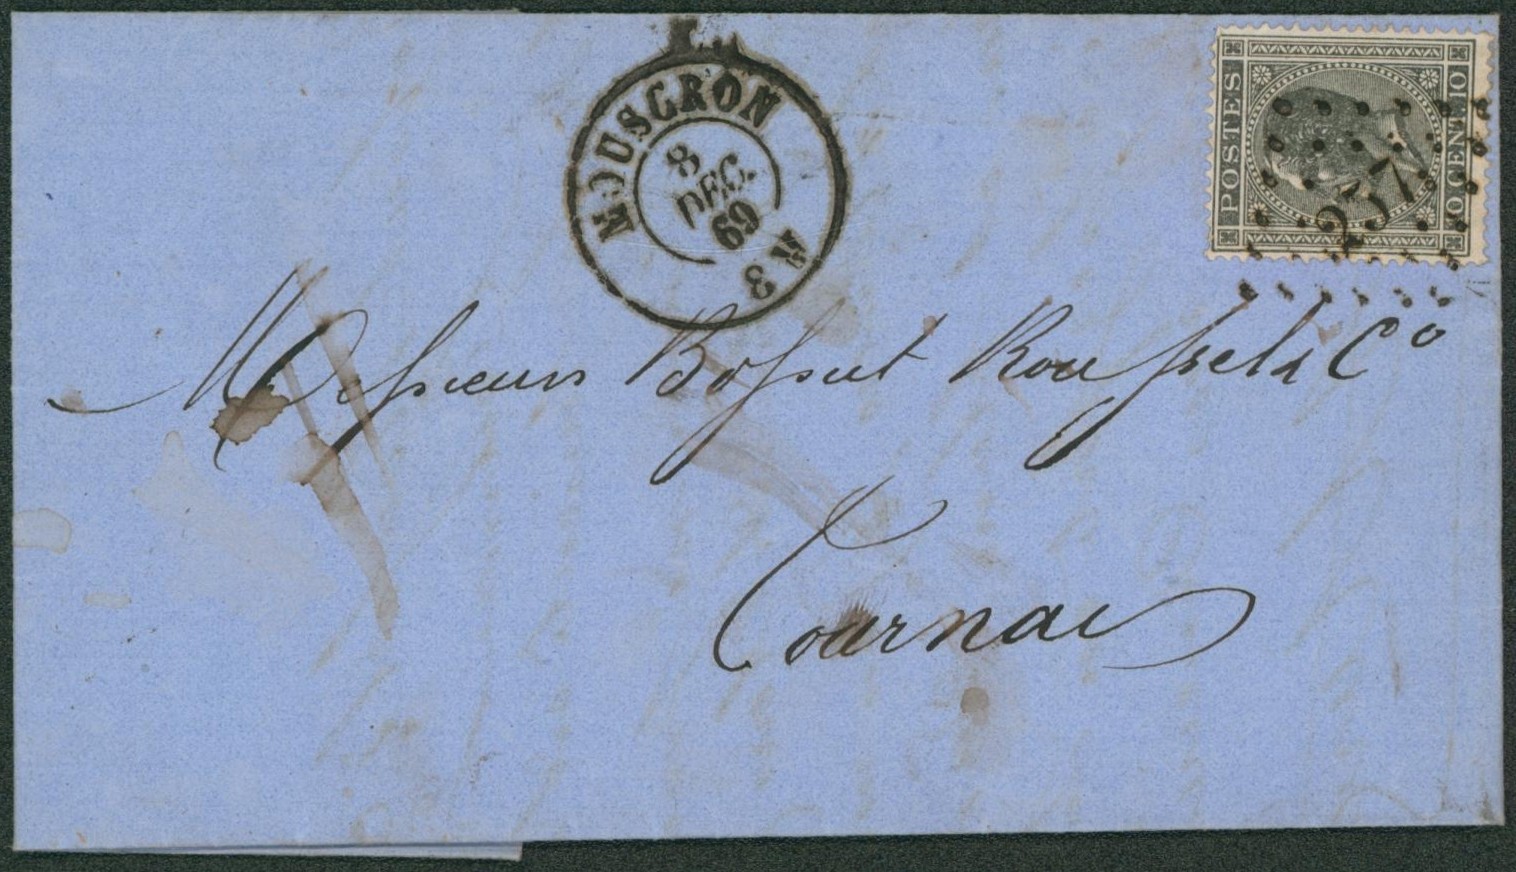 MOUSCRON
8
DEC.
69
3 M
POSTES
10 CENT. 10
257
Messieurs Bossut Roussel & Co
Tournai